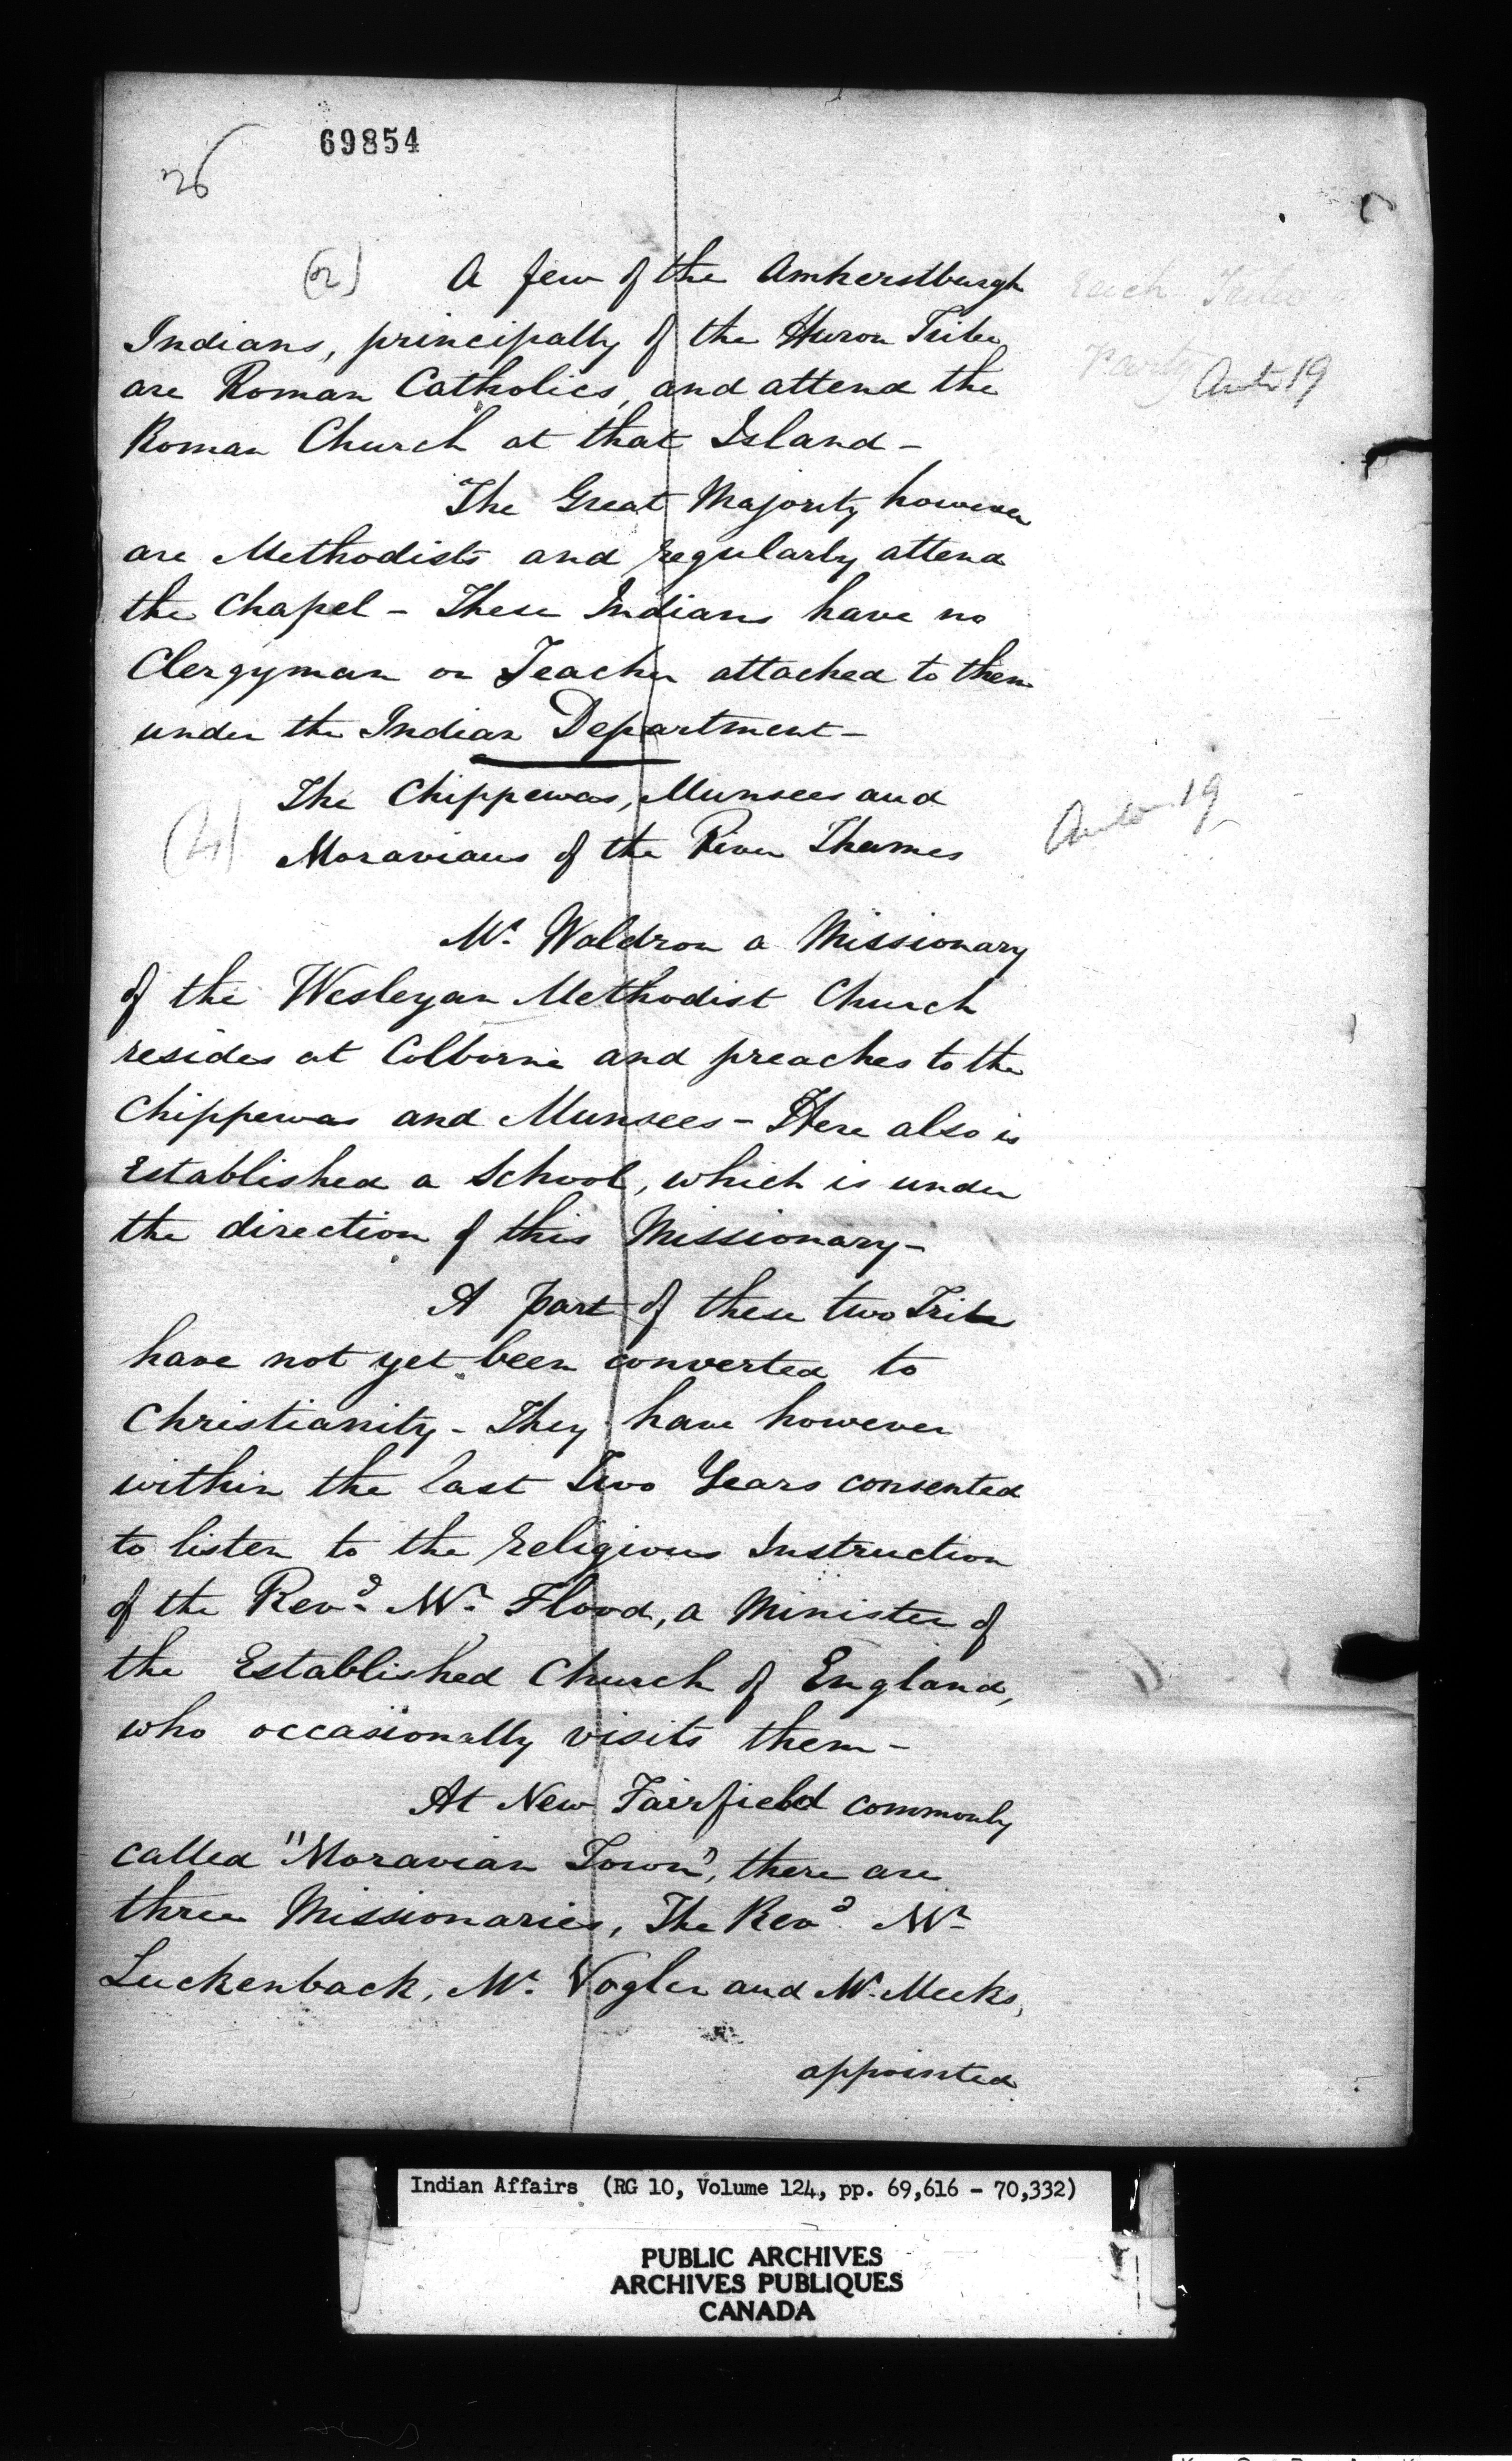 69854
26
(2) A few of the Amherstburgh
Indians, principally of the Huron Tribe,
are Roman Catholics, and attend the
Roman Church at that Island -
The Great Majority however
are Methodists and regularly attend
the Chapel - These Indians have no
Clergyman or Teacher attached to them
under the Indian Department -
The Chippewas, Munsees and
Moravians of the River Thames
Mr. Waldron a Missionary
of the Wesleyan Methodist Church
resides at Colborne and preaches to the
Chippewas and Munsees - Here also is
Established a School, which is under
the direction of this Missionary -
A part of these two Tribes
have not yet been converted to
Christianity - They have however
within the last Two Years consented
to listen to the religious Instruction
of the Revd. Mr. Flood, a Minister of
the Established Church of England,
who occasionally visits them -
At New Fairfield commonly
called "Moravian Town", there are
three Missionaries, The Revd. Mr.
Luckenback, Mr. Vogler and Mr. Meeks,
appointed
Indian Affairs (RG 10, Volume 124, pp. 69,616 - 70,332)
PUBLIC ARCHIVES
ARCHIVES PUBLIQUES
CANADA